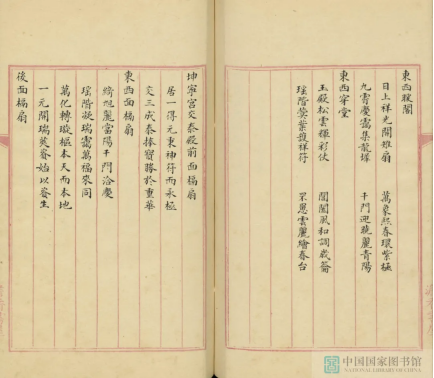 東西暖閣
日上祥光開雉扇　萬象熙春環紫極
九霄慶靄集龍墀　千門迎曉麗青陽
東西穿堂
玉殿松雲輝彩仗　閶闔風和調歲籥
瑤階蓂葉護祥符　罘罳雲麗繪春台
坤寧宮交泰殿前面槅扇
居一得元秉神符而永極
交三成泰捧寶勝於重華
東西面槅扇
綺旭麗當陽千門洽慶
瑤階凝瑞靄萬福來同
萬化轉璇樞本天而本地
一元開瑞莢資始以資生
後面槅扇
中国国家图书馆
NATIONAL LIBRARY OF CHINA